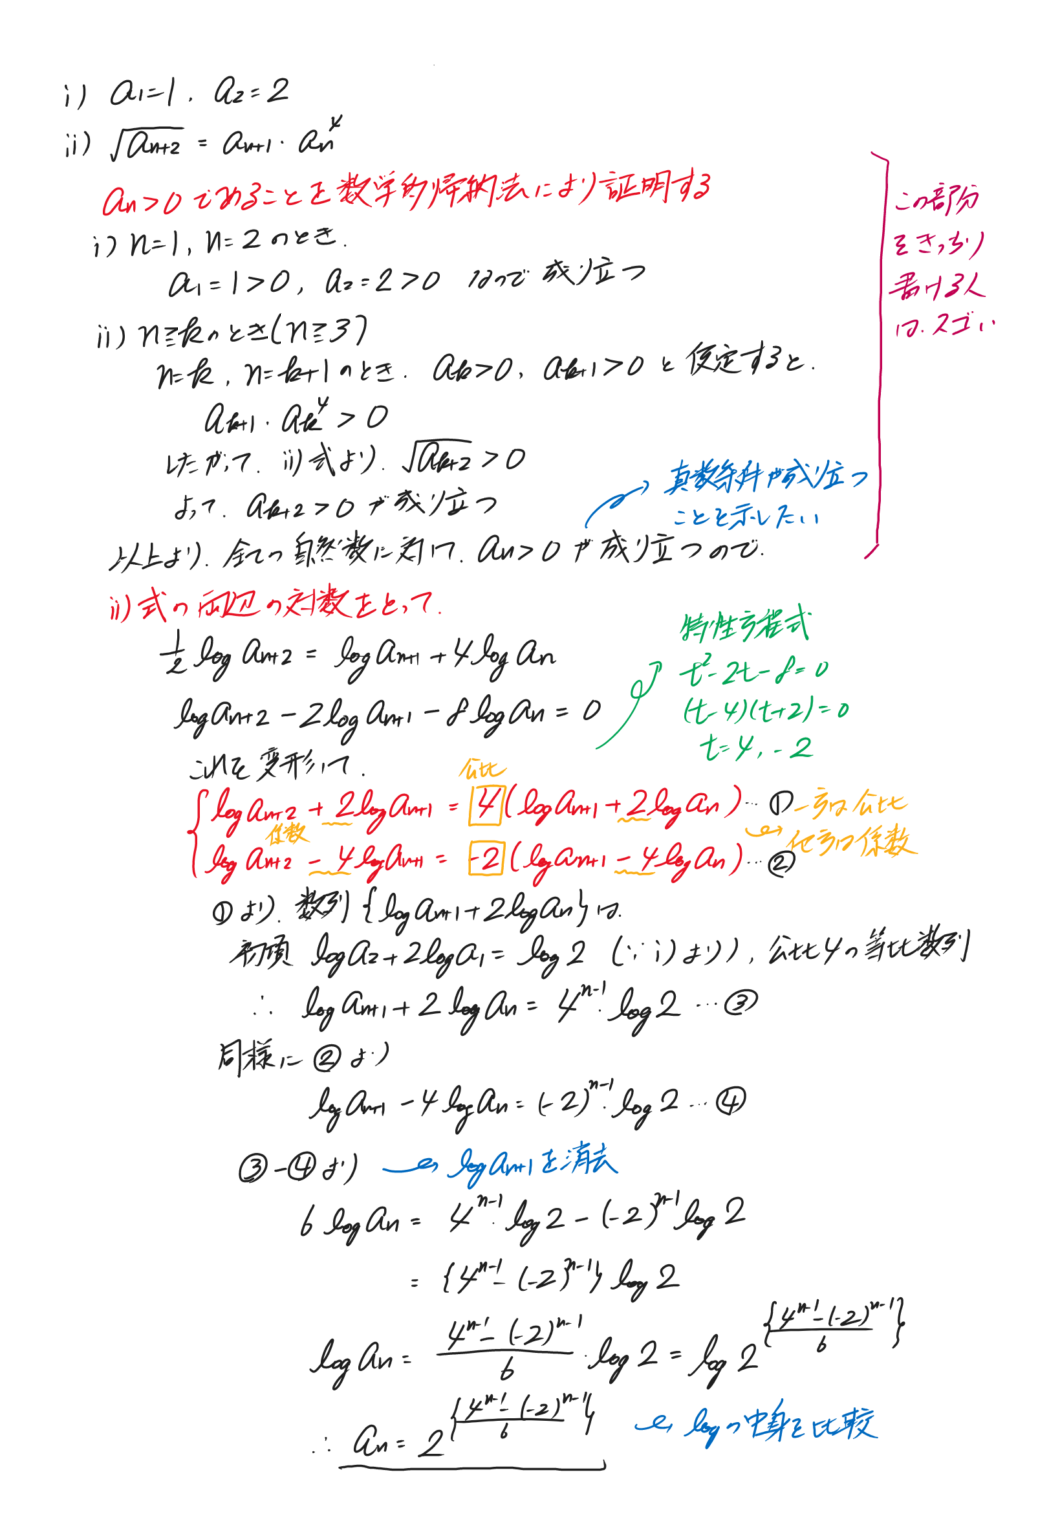 i) a₁=1, a₂=2
ii) √aₙ₊₂ = aₙ₊₁・aₙ⁴
aₙ>0であることを数学的帰納法により証明する
i) n=1, n=2のとき.
a₁=1>0, a₂=2>0 なので成り立つ
ii) n≧kのとき(n≧3)
n=k, n=k+1のとき. aₖ>0, aₖ₊₁>0と仮定すると.
aₖ₊₁・aₖ⁴>0
したがって. ii)式より. √aₖ₊₂>0
よって. aₖ₊₂>0が成り立つ
以上より. 全ての自然数に対して. aₙ>0が成り立つので.
この部分
をきっちり
書ける人
は、スゴい
真数条件が成り立つ
ことを示したい
ii)式の両辺の対数をとって.
1/2 log aₙ₊₂ = log aₙ₊₁ + 4 log aₙ
log aₙ₊₂ - 2 log aₙ₊₁ - 8 log aₙ = 0
特性方程式
t²-2t-8=0
(t-4)(t+2)=0
t=4, -2
これを変形して.
公比
log aₙ₊₂ + 2 log aₙ₊₁ = 4(log aₙ₊₁ + 2 log aₙ)…①
係数
log aₙ₊₂ - 4 log aₙ₊₁ = -2(log aₙ₊₁ - 4 log aₙ)…②
一方は公比
他方は係数
①より. 数列{log aₙ₊₁ + 2 log aₙ}は.
初項 log a₂ + 2 log a₁ = log 2 (∵i)より), 公比4の等比数列
∴ log aₙ₊₁ + 2 log aₙ = 4ⁿ⁻¹・log 2 …③
同様に②より
log aₙ₊₁ - 4 log aₙ = (-2)ⁿ⁻¹・log 2 …④
③-④より
log aₙ₊₁を消去
6 log aₙ = 4ⁿ⁻¹・log 2 - (-2)ⁿ⁻¹ log 2
= {4ⁿ⁻¹ - (-2)ⁿ⁻¹} log 2
log aₙ = (4ⁿ⁻¹ - (-2)ⁿ⁻¹)/6・log 2 = log 2^{(4ⁿ⁻¹-(-2)ⁿ⁻¹)/6}
∴ aₙ = 2^{(4ⁿ⁻¹-(-2)ⁿ⁻¹)/6}
logの中身を比較